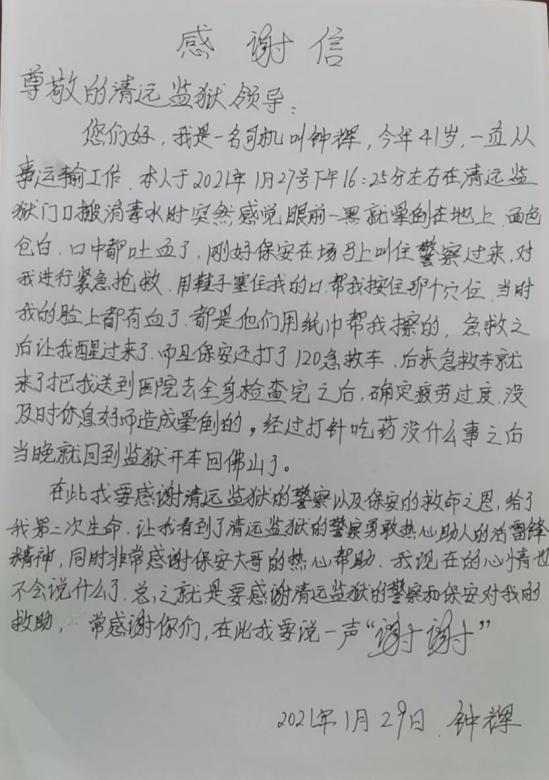 感谢信
尊敬的清远监狱领导：
您们好，我是一名司机叫钟辉，今年41岁，一直从
事运输工作．本人于2021年1月27号下午16:25分左右在清远监
狱门口搬消毒水时突然感觉眼前一黑就晕倒在地上．面色
仓白．口中都吐血了，刚好保安在场马上叫住警察过来，对
我进行紧急抢救．用鞋子塞住我的口．帮我按住那个穴位．当时
我的脸上都有血了．都是他们用纸巾帮我擦的，急救之
后让我醒过来了．而且保安还打了120急救车，后来急救车就
来了把我送到医院去全身检查完之后，确定疲劳过度．没
及时休息好而造成晕倒的，经过打针吃药没什么事之后
当晚就回到监狱开车回佛山了。
在此我要感谢清远监狱的警察以及保安的救命之恩，给了
我第二次生命，让我看到了清远监狱的警察勇敢热心助人的活雷锋
精神，同时非常感谢保安大哥的热心帮助．我现在的心情也
不会说什么了．总之就是要感谢清远监狱的警察和保安对我的
救助，常感谢你们，在此我要说一声“谢谢”
2021年1月29日．钟辉